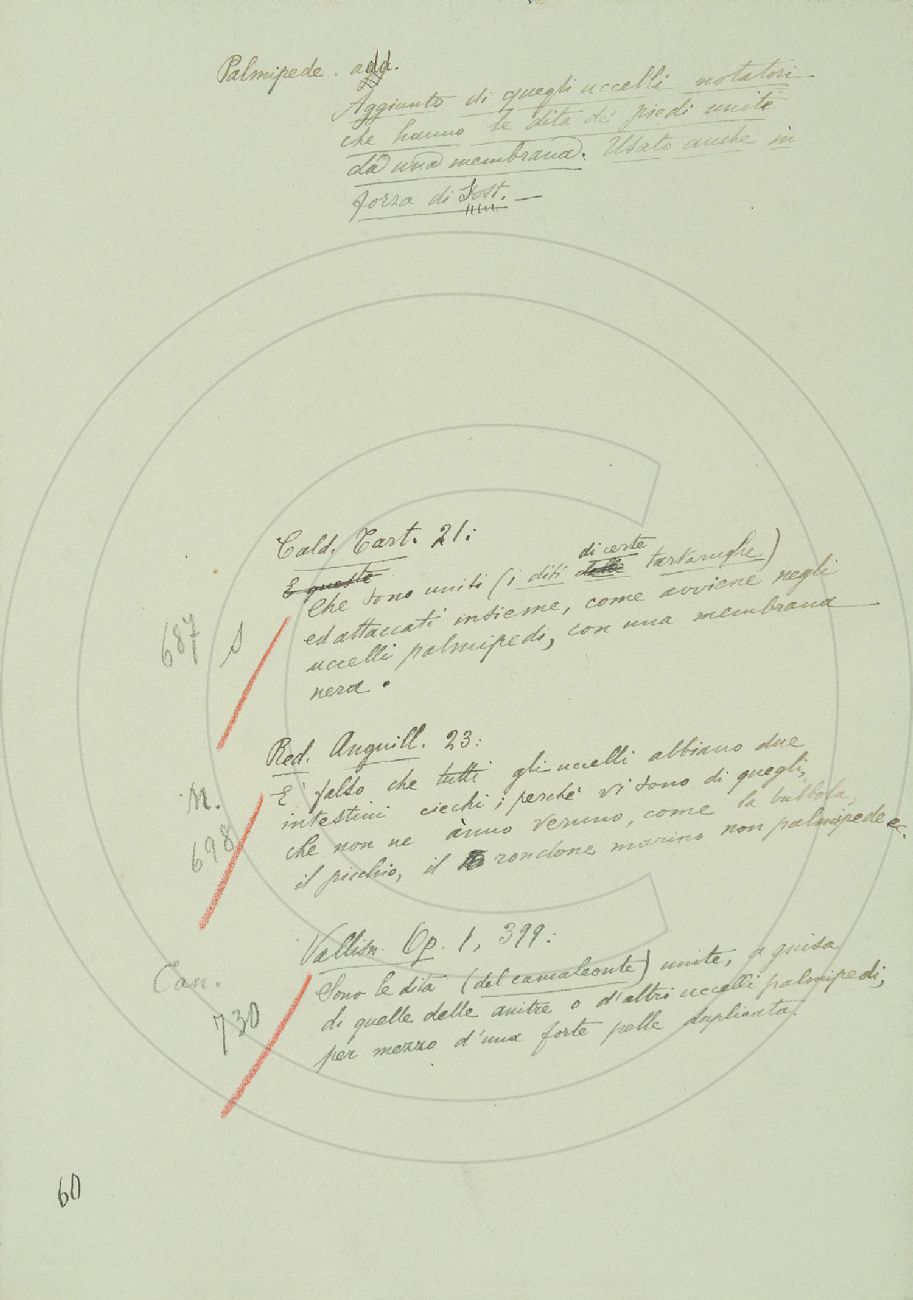 Palmipede. add.
Aggiunto di quegli uccelli notatori
che hanno le dita de' piedi unite
da una membrana. Usato anche in
forza di Sost. —
Cald. Tart. 21:
E queste
Che sono uniti (i diti delle di certe tartarughe)
ed attaccati insieme, come avviene negli
uccelli palmipedi, con una membrana
nera.
687 S
Red. Anguill. 23:
È falso che tutti gli uccelli abbiano due
intestini ciechi; perchè vi sono di quegli,
che non ne ànno veruno, come la bubbola,
il picchio, il rondone marino non palmipede ec.
N.
698
Vallisn. Op. 1, 399:
Sono le dita (del camaleonte) unite, a guisa
di quelle delle anitre o d'altri uccelli palmipedi,
per mezzo d'una forte pelle duplicata.
Can.
730
60